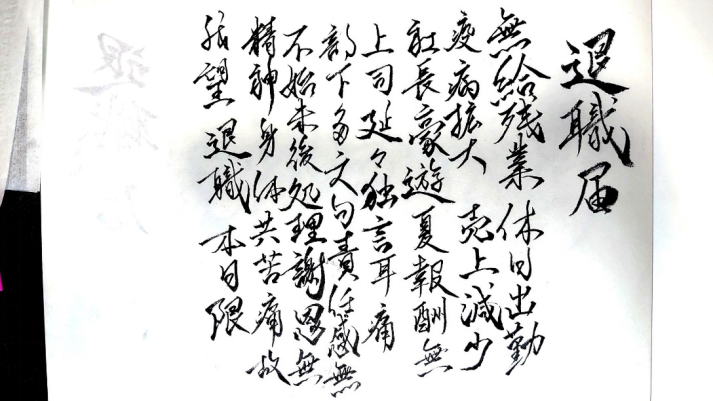 退職届
無給残業 休日出勤
疫病拡大 売上減少
社長豪遊 夏報酬無
上司延々独言耳痛
部下多文句責任感無
不始末後処理謝恩無
精神身体共苦痛故
熱望退職 本日限